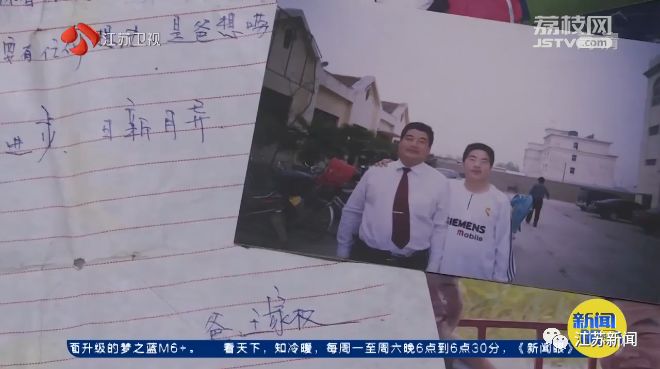 江苏卫视
荔枝网
JSTV.com
是爸想
要有
进步 日新月异
SIEMENS
mobile
爸:王家权
新闻
江苏新闻
面升级的梦之蓝M6+。 看天下，知冷暖，每周一至周六晚6点到6点30分，《新闻眼》